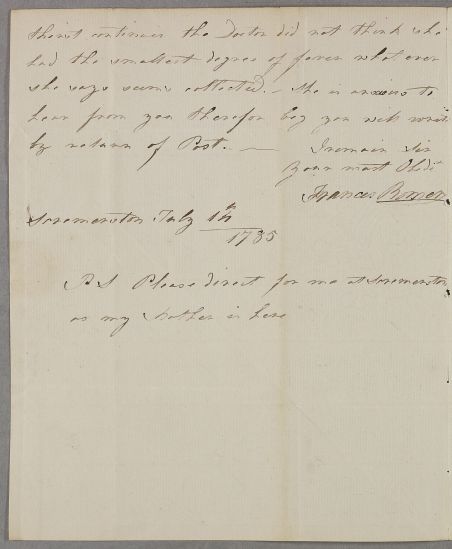 thirst continues the Doctor did not think she
had the smallest degree of fever what ever
she says seems collected. – She is anxous to
hear from you therefor beg you will write
by return of Post. —
I remain Sir
Your most Obdt
Frances Romer
Scremerston July 1th
1785
P S Please direct for me at Scremerston
as my Mother is here